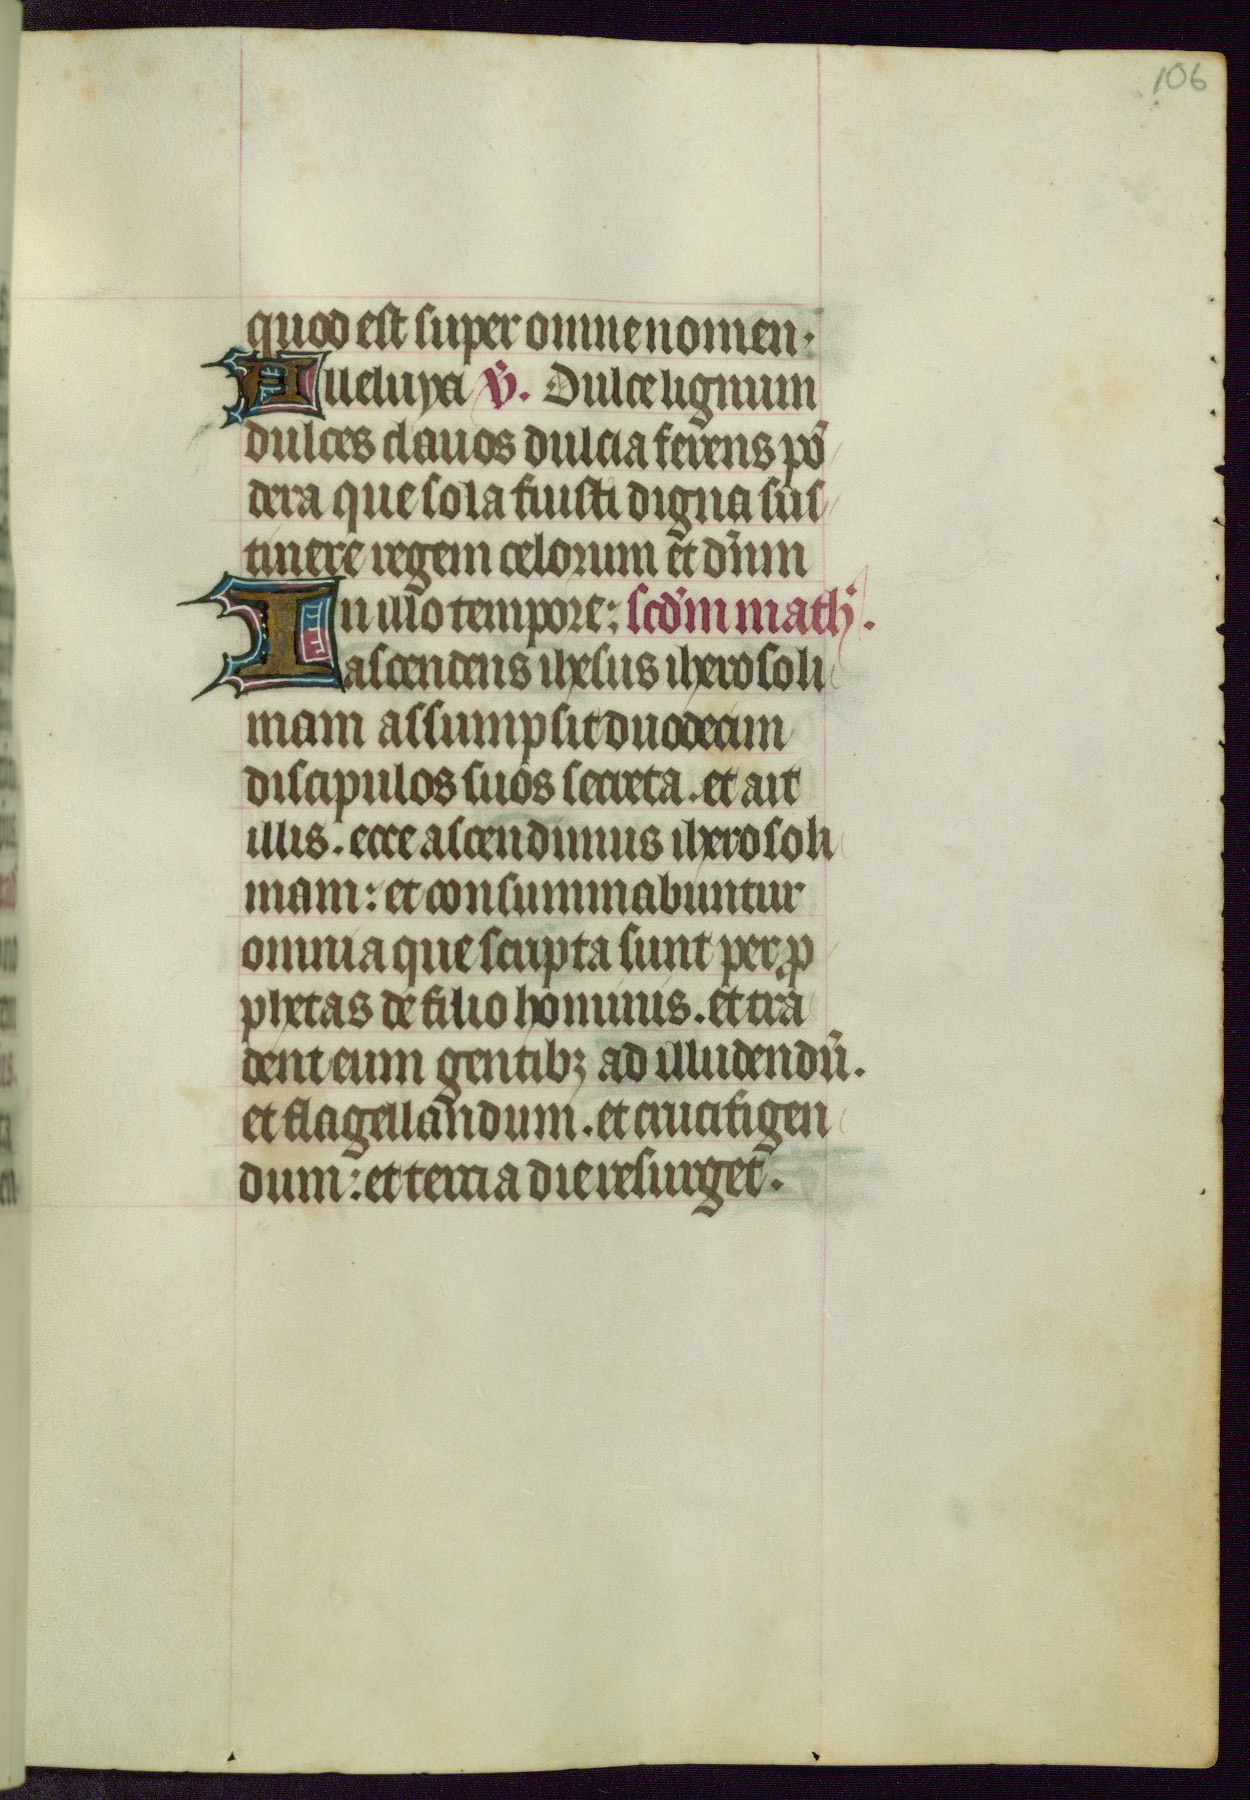 106
quod est super omne nomen.
Alleluya v̄. Dulce lignum
dulces clauos dulcia ferens pō
dera que sola fuisti digna sus
tinere regem celorum et dn̄um
In illo tempore: scd̄m math̄.
ascendens ihesus iherosoli
mam assumpsit duodecim
discipulos suos secreta. et ait
illis. ecce ascendimus iherosoli
mam: et consummabuntur
omnia que scripta sunt per ꝓ
phetas de filio hominis. et tra
dent eum gentibꝫ ad illudendū.
et flagellandum. et crucifigen
dum: et tercia die resurget.